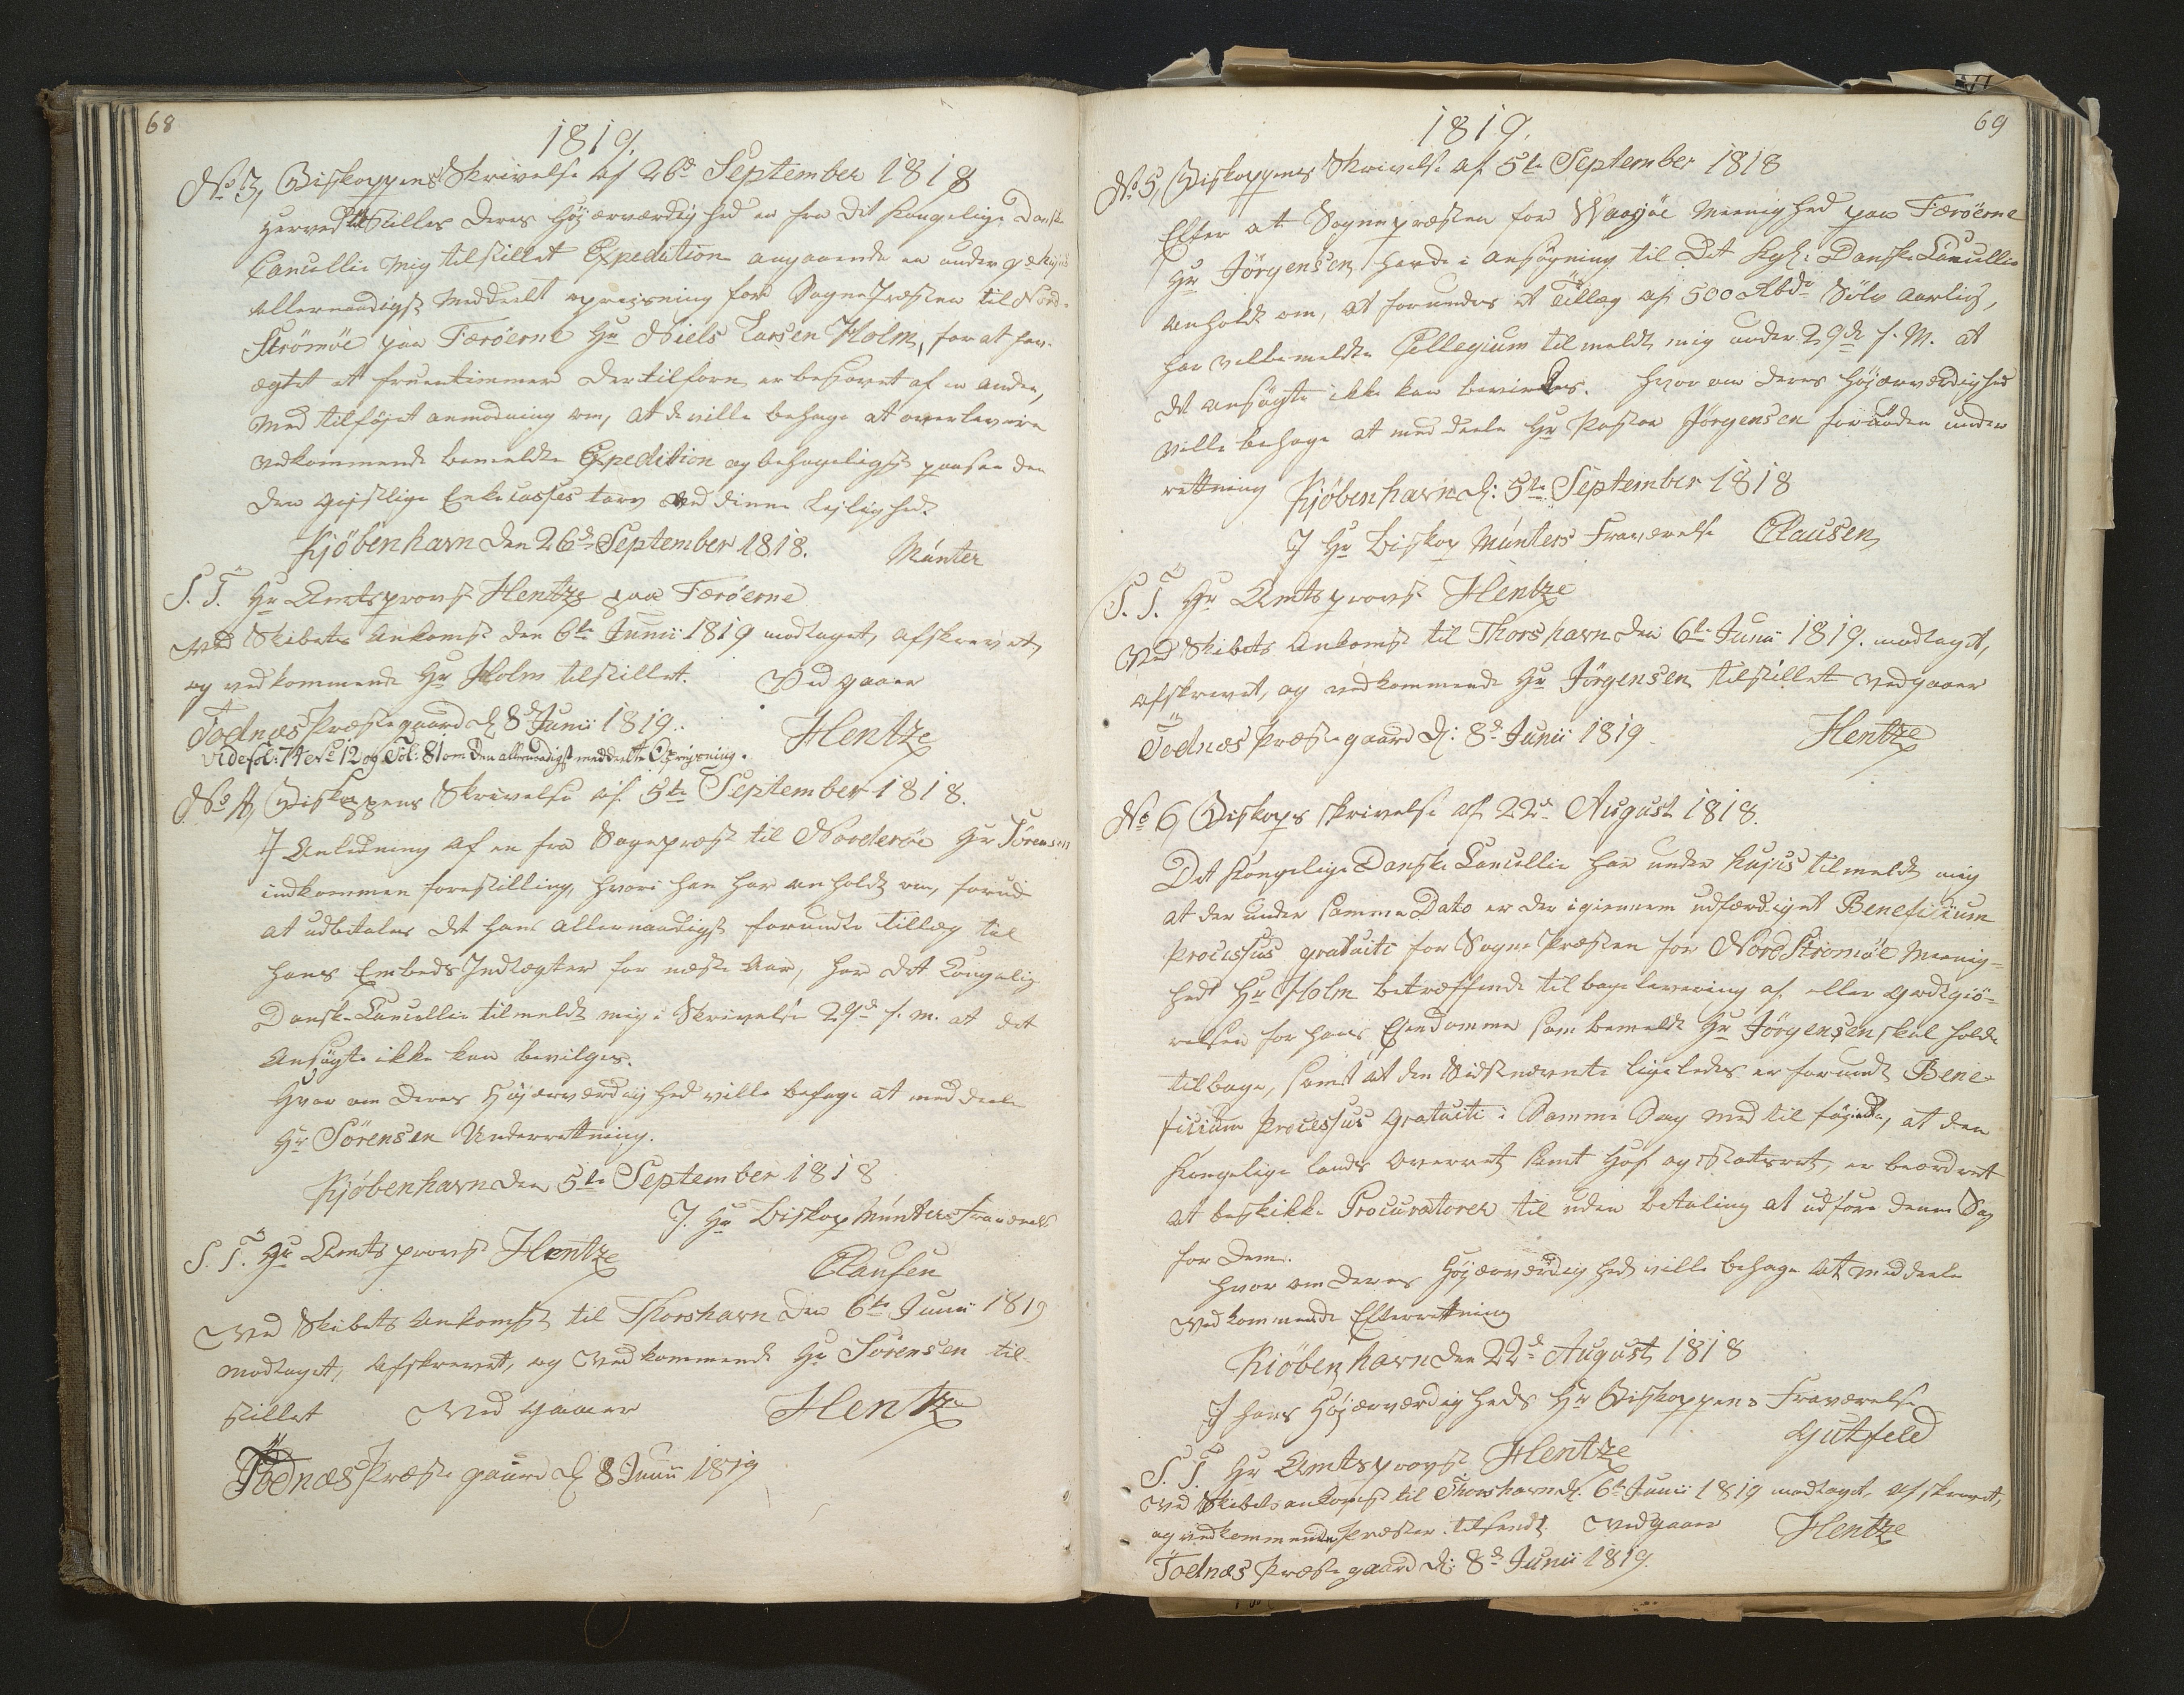 68
1819.
No 3, Biskoppens Skrivelse af 26de September 1818
Herved tilstilles Deres Højærværdighed en fra det Kongelige Danske
Cancellie mig tilstillet Expedition angaaende en under
allernaadigst meddeelt opreisning for SognePræsten til Nord-
Strömöe paa Færöerne Hr Niels Larsen Holm, for at have
ægtet et fruentimmer der tilforn er besovet af en anden,
med tilföjet anmodning om, at de ville behage at overlevere
vedkommende bemeldte Expedition og behageligst paasee den
den gejstlige Enkecasses tarv ved denne Lejlighed.
Kjöbenhavn den 26de September 1818.
Münter
S. T. Hr Amtsprovst Hentze paa Færöerne
Ved Skibets Ankomst den 6te Junii 1819 modtaget, afskrevet,
og vedkommende Hr Holm tilstillet. Vedgaaer
Todnæs Præstegaard d. 8de Junii 1819.
Hentze
vide fol: 74 No 12 og Fol: 81 om den allernaadigst meddeelte Opreisning.
No 4, Biskoppens Skrivelse af 5te September 1818.
I Anledning af en fra Sognepræst til Norderöe Hr Sörensen
indkommen forestilling, hvori han har anholdt om, forud
at udbetales det ham allernaadigst forundte tillæg til
hans Embeds Indtægter for næste Aar, har det Kongelig
Danske Cancellie tilmeldt mig i Skrivelse 29de f. m. at det
Ansögte ikke kan bevilges.
Hvor om Deres Højærværdighed ville behage at meddeele
Hr Sörensen Underretning.
Kjöbenhavn den 5te September 1818
I Hr Biskop Münters Fraværelse
S. T. Hr Amtsprovst Hentze
Clausen
Ved Skibets Ankomst til Thorshavn den 6te Junii 1819
modtaget, afskrevet, og vedkommende Hr Sörensen til-
stillet Vedgaaer
Hentze
Todnæs Præstegaard d. 8 Junii 1819
69
1819.
No 5, Biskoppens Skrivelse af 5te September 1818
Efter at Sognepræsten for Waagöe Meenighed paa Færöerne
Hr Jörgensen havde i ansögning til Det Kgl: Danske Cancellie
anholdt om, at forundes et Tillæg af 500 Rbdr Sölv aarlig,
har velbemeldte Collegium tilmeldt mig under 29de f. M. at
det ansögte ikke kan bevirkes. Hvor om Deres Højærværdighed
ville behage at meddeele Hr Pastor Jörgensen fornöden under
rettning
Kjöbenhavn d: 5te September 1818
I Hr Biskop Münters Fraværelse Clausen
S. T. Hr Amtsprovst Hentze
Ved Skibets Ankomst til Thorshavn den 6te Junii 1819. modtaget,
afskrevet, og vedkommende Hr Jörgensen tilstillet vedgaaer
Todnæs Præstegaard d: 8de Junii 1819
Hentze
No 6, Biskops skrivelse af 22de August 1818.
Det Kongelige Danske Cancellie har under hujus tilmeldt mig
at der under samme Dato er der igiennem udfærdiget Beneficium
processus gratuiti for Sogne Præsten for NordStromöe Meenig-
hed Hr Holm betræffende tilbagelevering af eller godtgiö-
relsen for hans Ejendomme som bemeldt Hr Jörgensen skal holde
tilbage, samt at den Sidstnævnte ligeledes er forundt Bene-
ficium Processus gratuiti i Samme Sag med tilföjende, at den
Kongelige lands Overret samt Hof og Stadsret, er beordret
at beskikke Procuratorer til uden betaling at udföre denne Sag
for Dem.
Hvor om Deres Højærværdighed ville behage at meddeele
Vedkommende Efterretning
Kiöbenhavn den 22de August 1818
I hans Højærværdigheds Hr Biskoppens Fraværelse
Gutfeld
S. T. Hr Amtsprovst Hentze
Ved Skibets ankomst til Thorshavn d. 6te Junii 1819 modtaget, afskrevet,
og vedkommende Præster tilsendt. Vedgaaer
Hentze
Todnæs Præstegaard d: 8de Junii 1819.